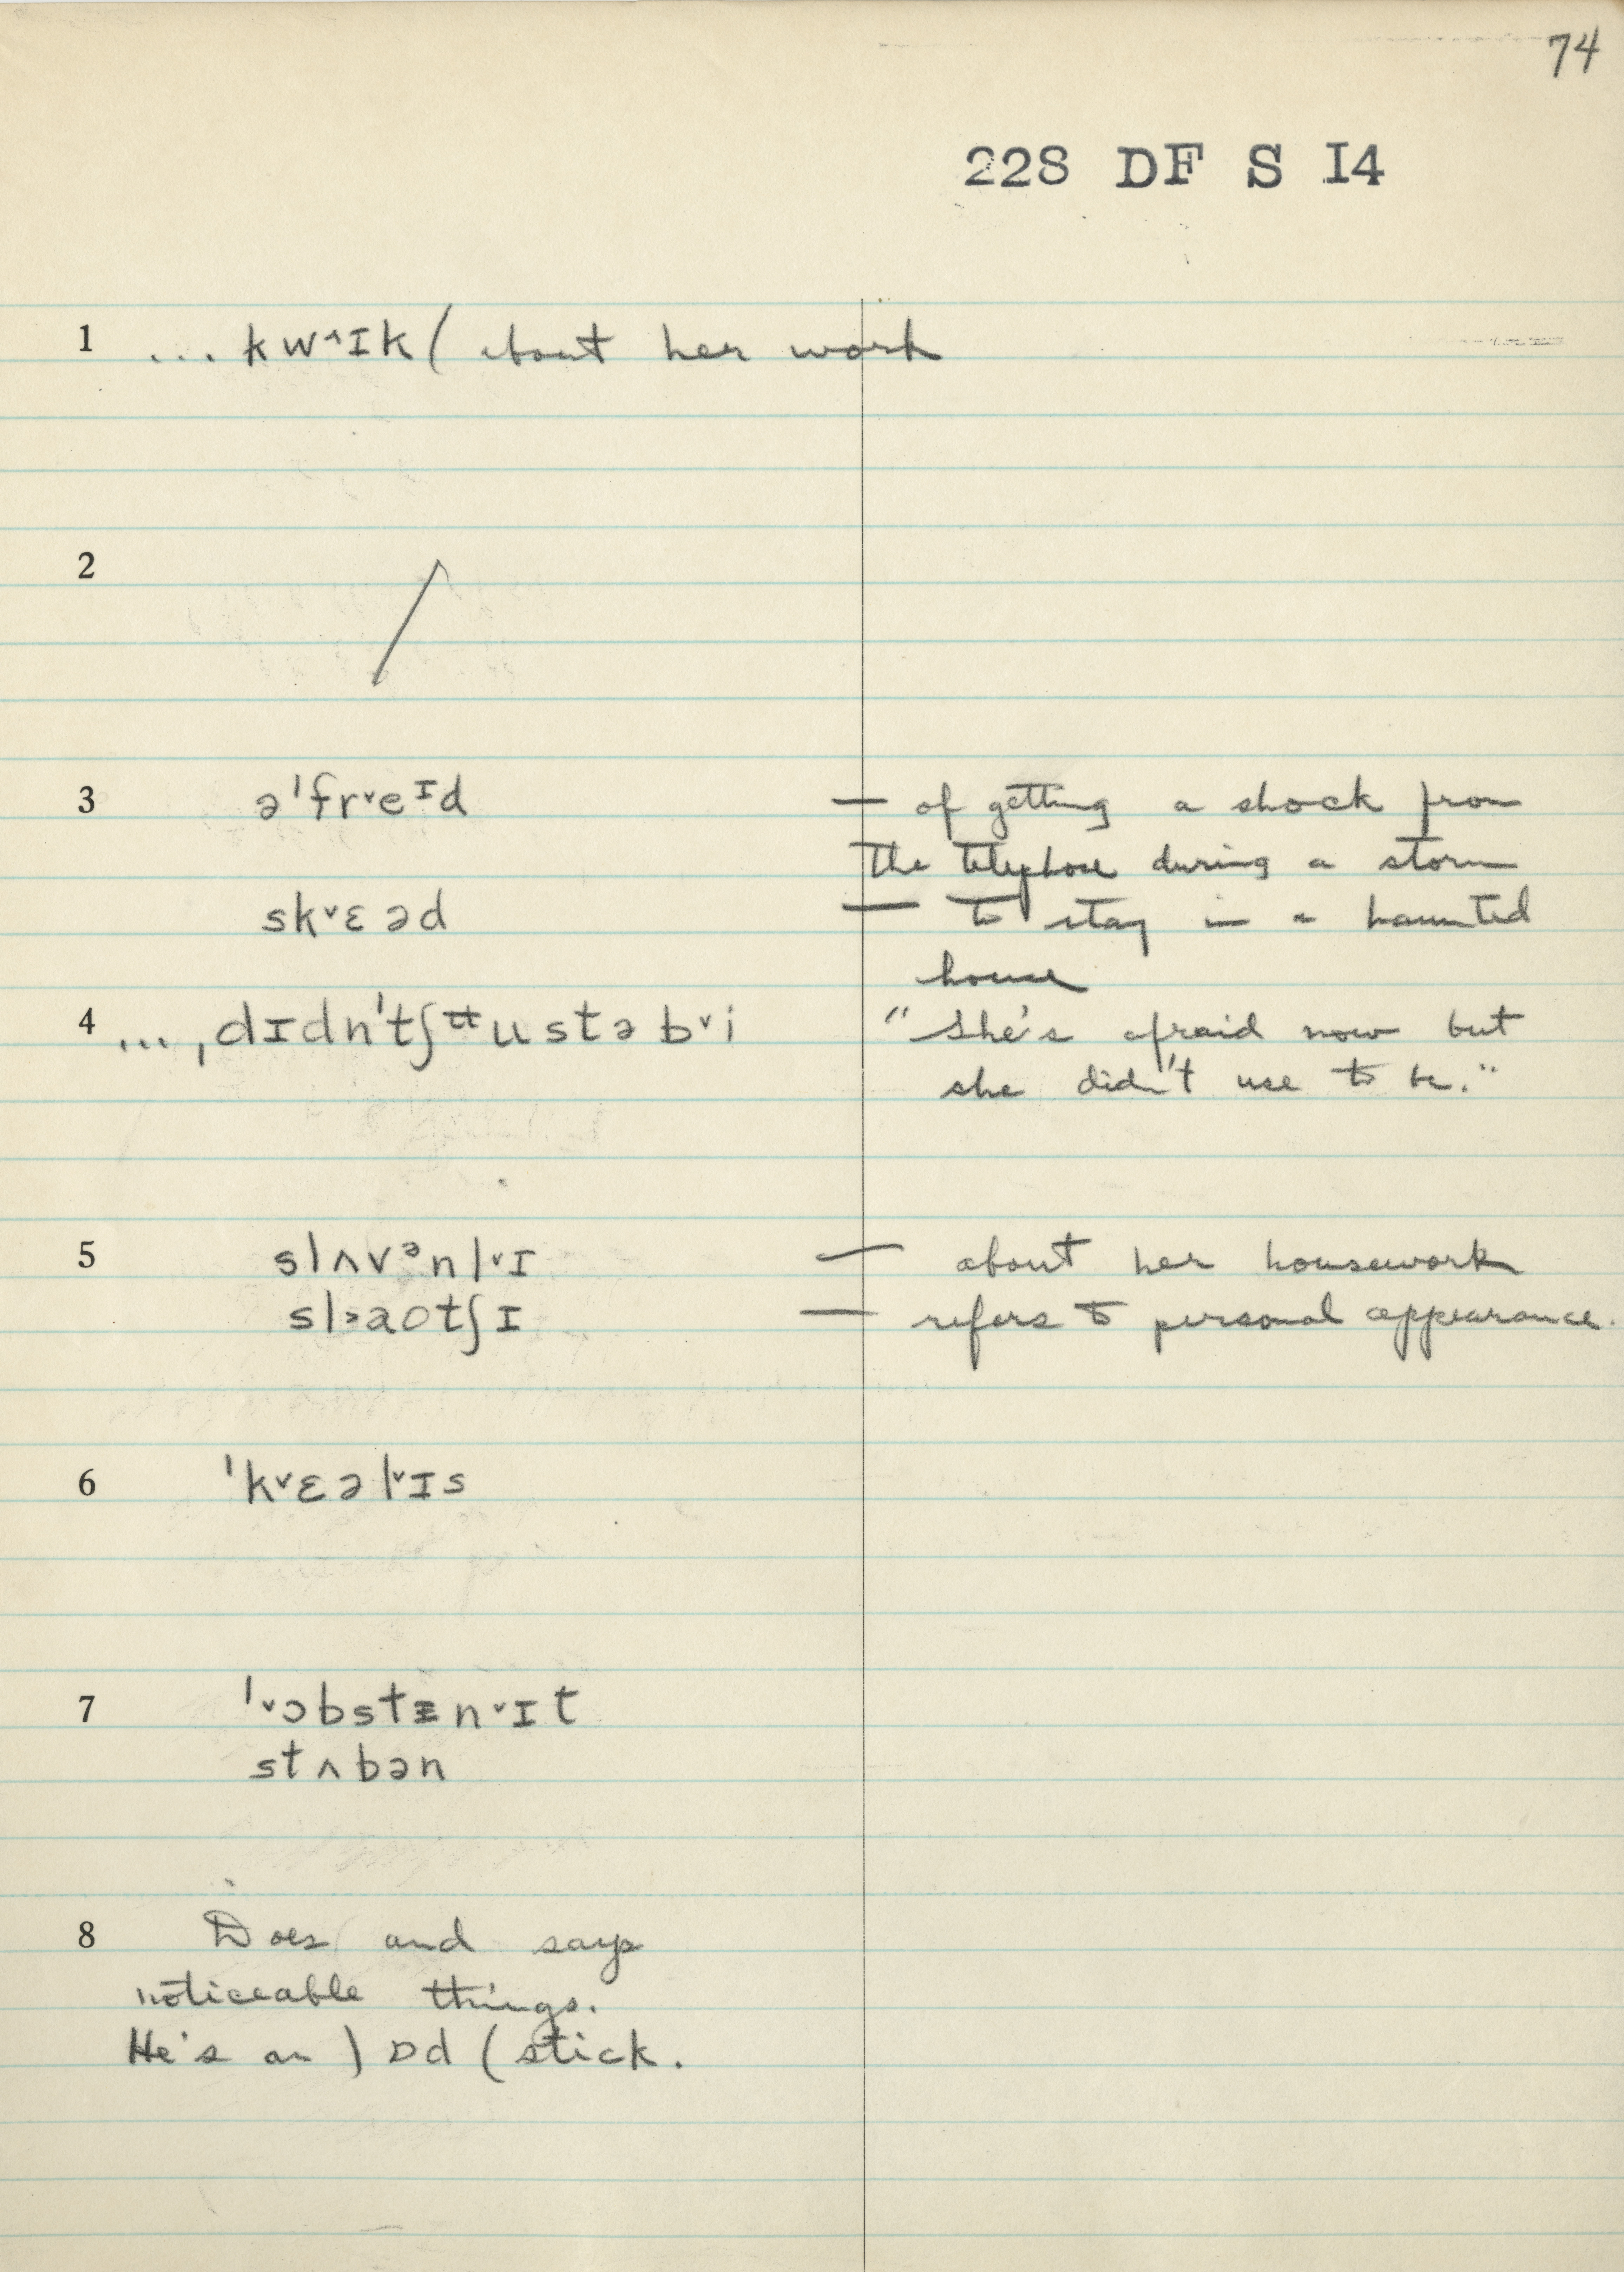 74
228 DF S I4
1 ... kwˆɪk ( about her work
2
3 əˈfr˅eᶦd — of getting a shock from
the telephone during a storm
sk˅ɛəd — to stay in a haunted
house
4 ..., dɪdn'tʃᵾustə b˅i "She's afraid now but
she didn't use to be."
5 slʌvᵊnl˅ɪ — about her housework
sl˃aotʃɪ — refers to personal appearance.
6 ˈk˅ɛəl˅ɪs
7 ˈ˅ɔbstɪn˅ɪt
stʌbən
8 Does and says
noticeable things.
He's an ) ɒd ( stick.